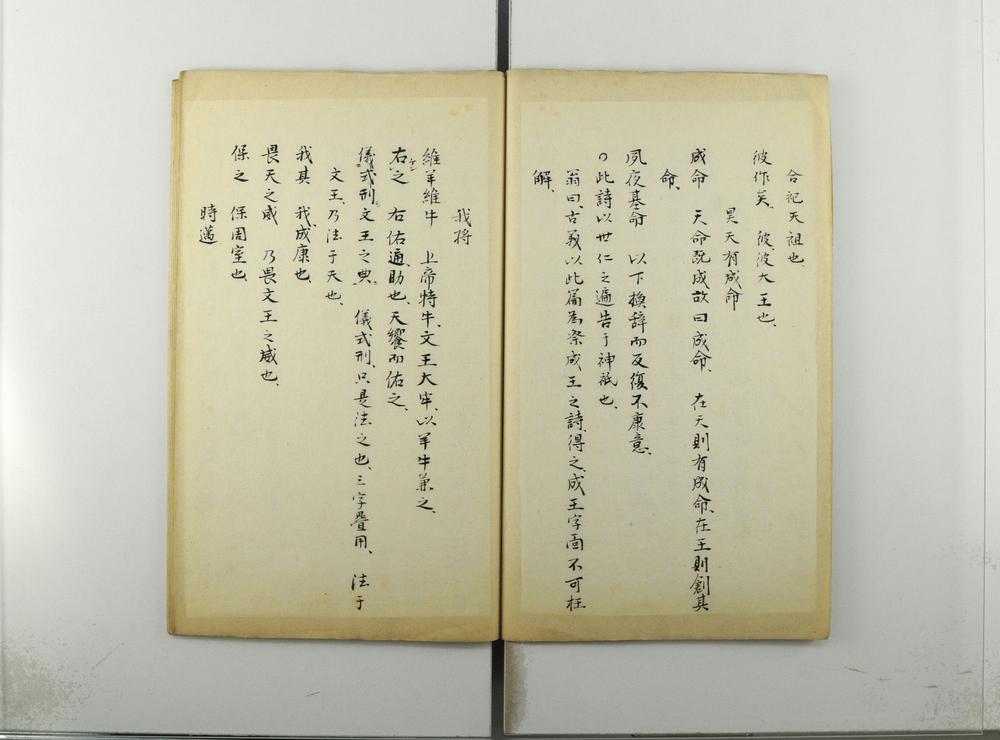 合祀天祖也、
彼作矣、彼、彼大王也、
昊天有成命
成命　天命既成故曰成命、在天則有成命、在王則創其
命、
夙夜基命　以下換辞而反復不康意、
此詩以世仁之遍告于神祇也、
翁曰、古義以此篇為祭成王之詩、得之、成王字面不可枉
解、
我将
維羊維牛　上帝特牛、文王大牢、以羊牛兼之、
右之　右佑通、助也、天饗而佑之、
儀式刑文王之典、儀式刑、只是法之也、三字畳用、法于
文王、乃法于天也、
我其　我、成康也、
畏天之威　乃畏文王之威也、
保之　保周室也、
時邁